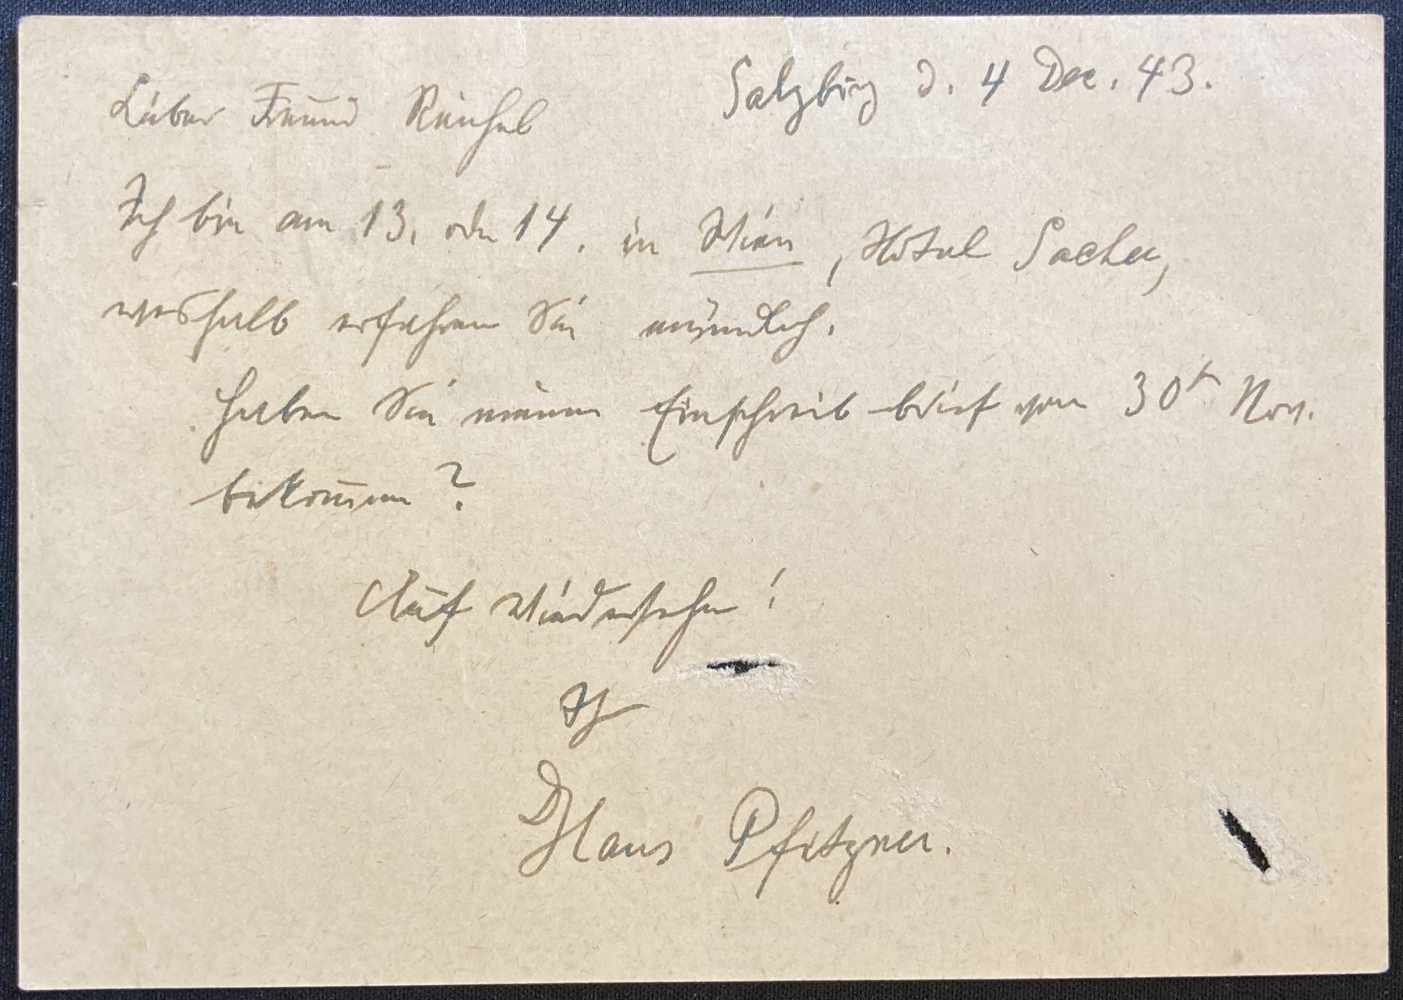 Salzburg d. 4 Dec. 43.
Lieber Freund Reichel
Ich bin am 13. oder 14. in Wien, Hotel Sacher,
weshalb erfahren Sie mündlich.
Haben Sie meinen Einschreib-brief vom 30t Nov.
bekommen?
Auf Wiedersehn!
Ihr
Dr Hans Pfitzner.